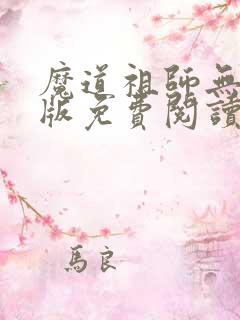 魔道祖師無
版免費閱讀
馬良